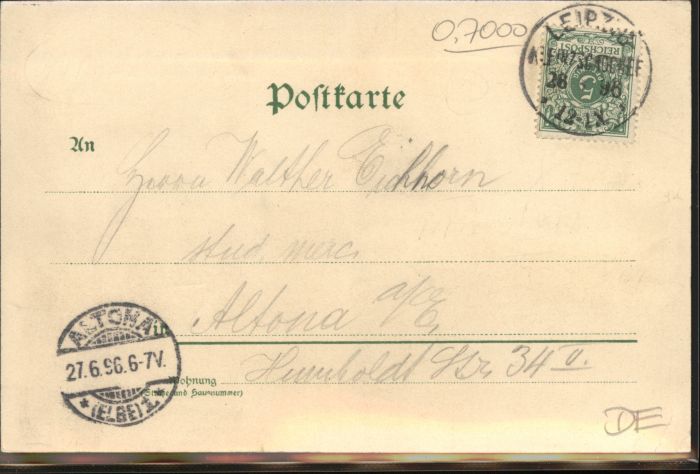 0,7000
LEIPZIG
REICHSPOST
5
26 96
12-1N
Postkarte
An
Herrn Walther Eichhorn
stud merc.
Altona a/E
in
ALTONA
27.6.96.6-7V.
* (ELBE) 1. *
Humboldt Str. 34 II.
Wohnung
(Straße und Hausnummer)
DE